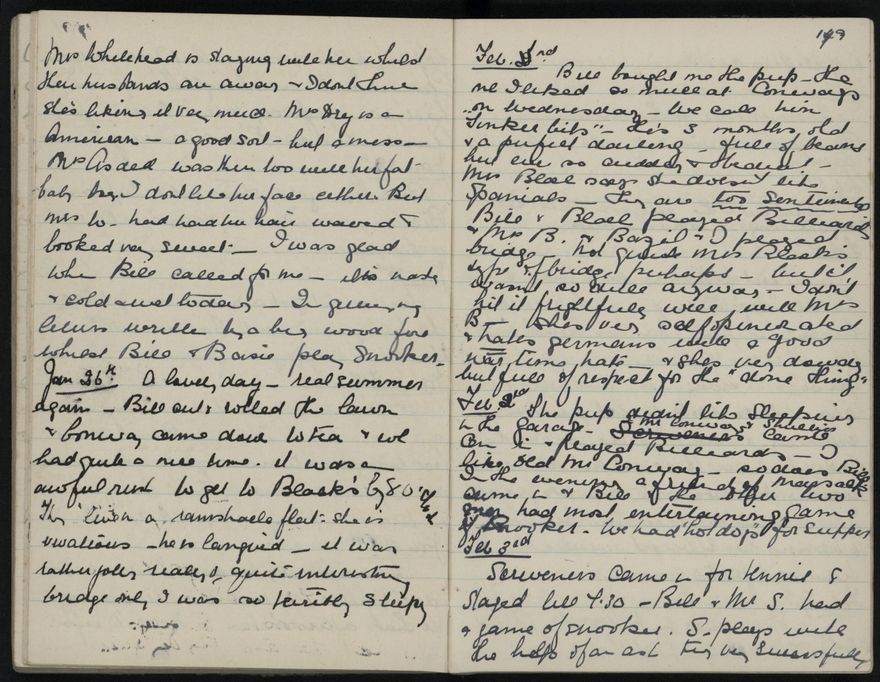 Mrs Whitehead is staying with her whilst
their husbands are away & I dont think
she's liking it very much. Mrs Dey is an
American — a good sort — but a mess —
Mrs was there too with her fat
baby boy I dont like his face either. But
Mrs W. had had her hair waved &
looked very sweet — I was glad
when Bill called for me — it is nasty
& cold & wet today — I'm
letters written by a big wood fire
whilst Bill & Basie play Snooker.
Jan 26th. A lovely day — real summer
again — Bill out & rolled the lawn
& Conway came down to tea & we
had quite a nice time. it was an
awful rush to get to Black's by 8 o'clock
They live in a ramshackle flat: she is
vivacious — he is languid — it was
rather jolly really & quite interesting
bridge only I was so terribly sleepy
149
Feb. 1rd
Bill bought me the pup — the
one I liked so much at Conways
on Wednesday — We call him
"Tinkerbits" — He's 3 months old
& a perfect darling — full of beans
but ever so cuddly & obedient —
Mrs Black says she doesn't like
Spaniels — They are too sentimental
Bill & Black played Billiards
& Mrs B. & Basil & I played
bridge — not quite Mrs Black's
type of bridge perhaps — but it
wasnt so dull anyway — I don't
hit it frightfully well with Mrs
B — She's very self opinionated
& hates germans with a good
war time hate — & she's very downy
but full of respect for the "done thing"
Feb 2nd The pup didn't like sleeping
in the garage — Mr Conway & Shellis
Scriveners came
in & played Billiards — I
like old Mr Conway — so does Bill
In the evening a friend of
came in & Bill & the other two
men had most entertaining game
of Snooker. We had "hot dogs" for supper
Feb 3rd
Scriveners came in for tennis &
stayed till 7.30 — Bill & Mr S. had
a game of snooker. S. plays with
the help of an very successfully